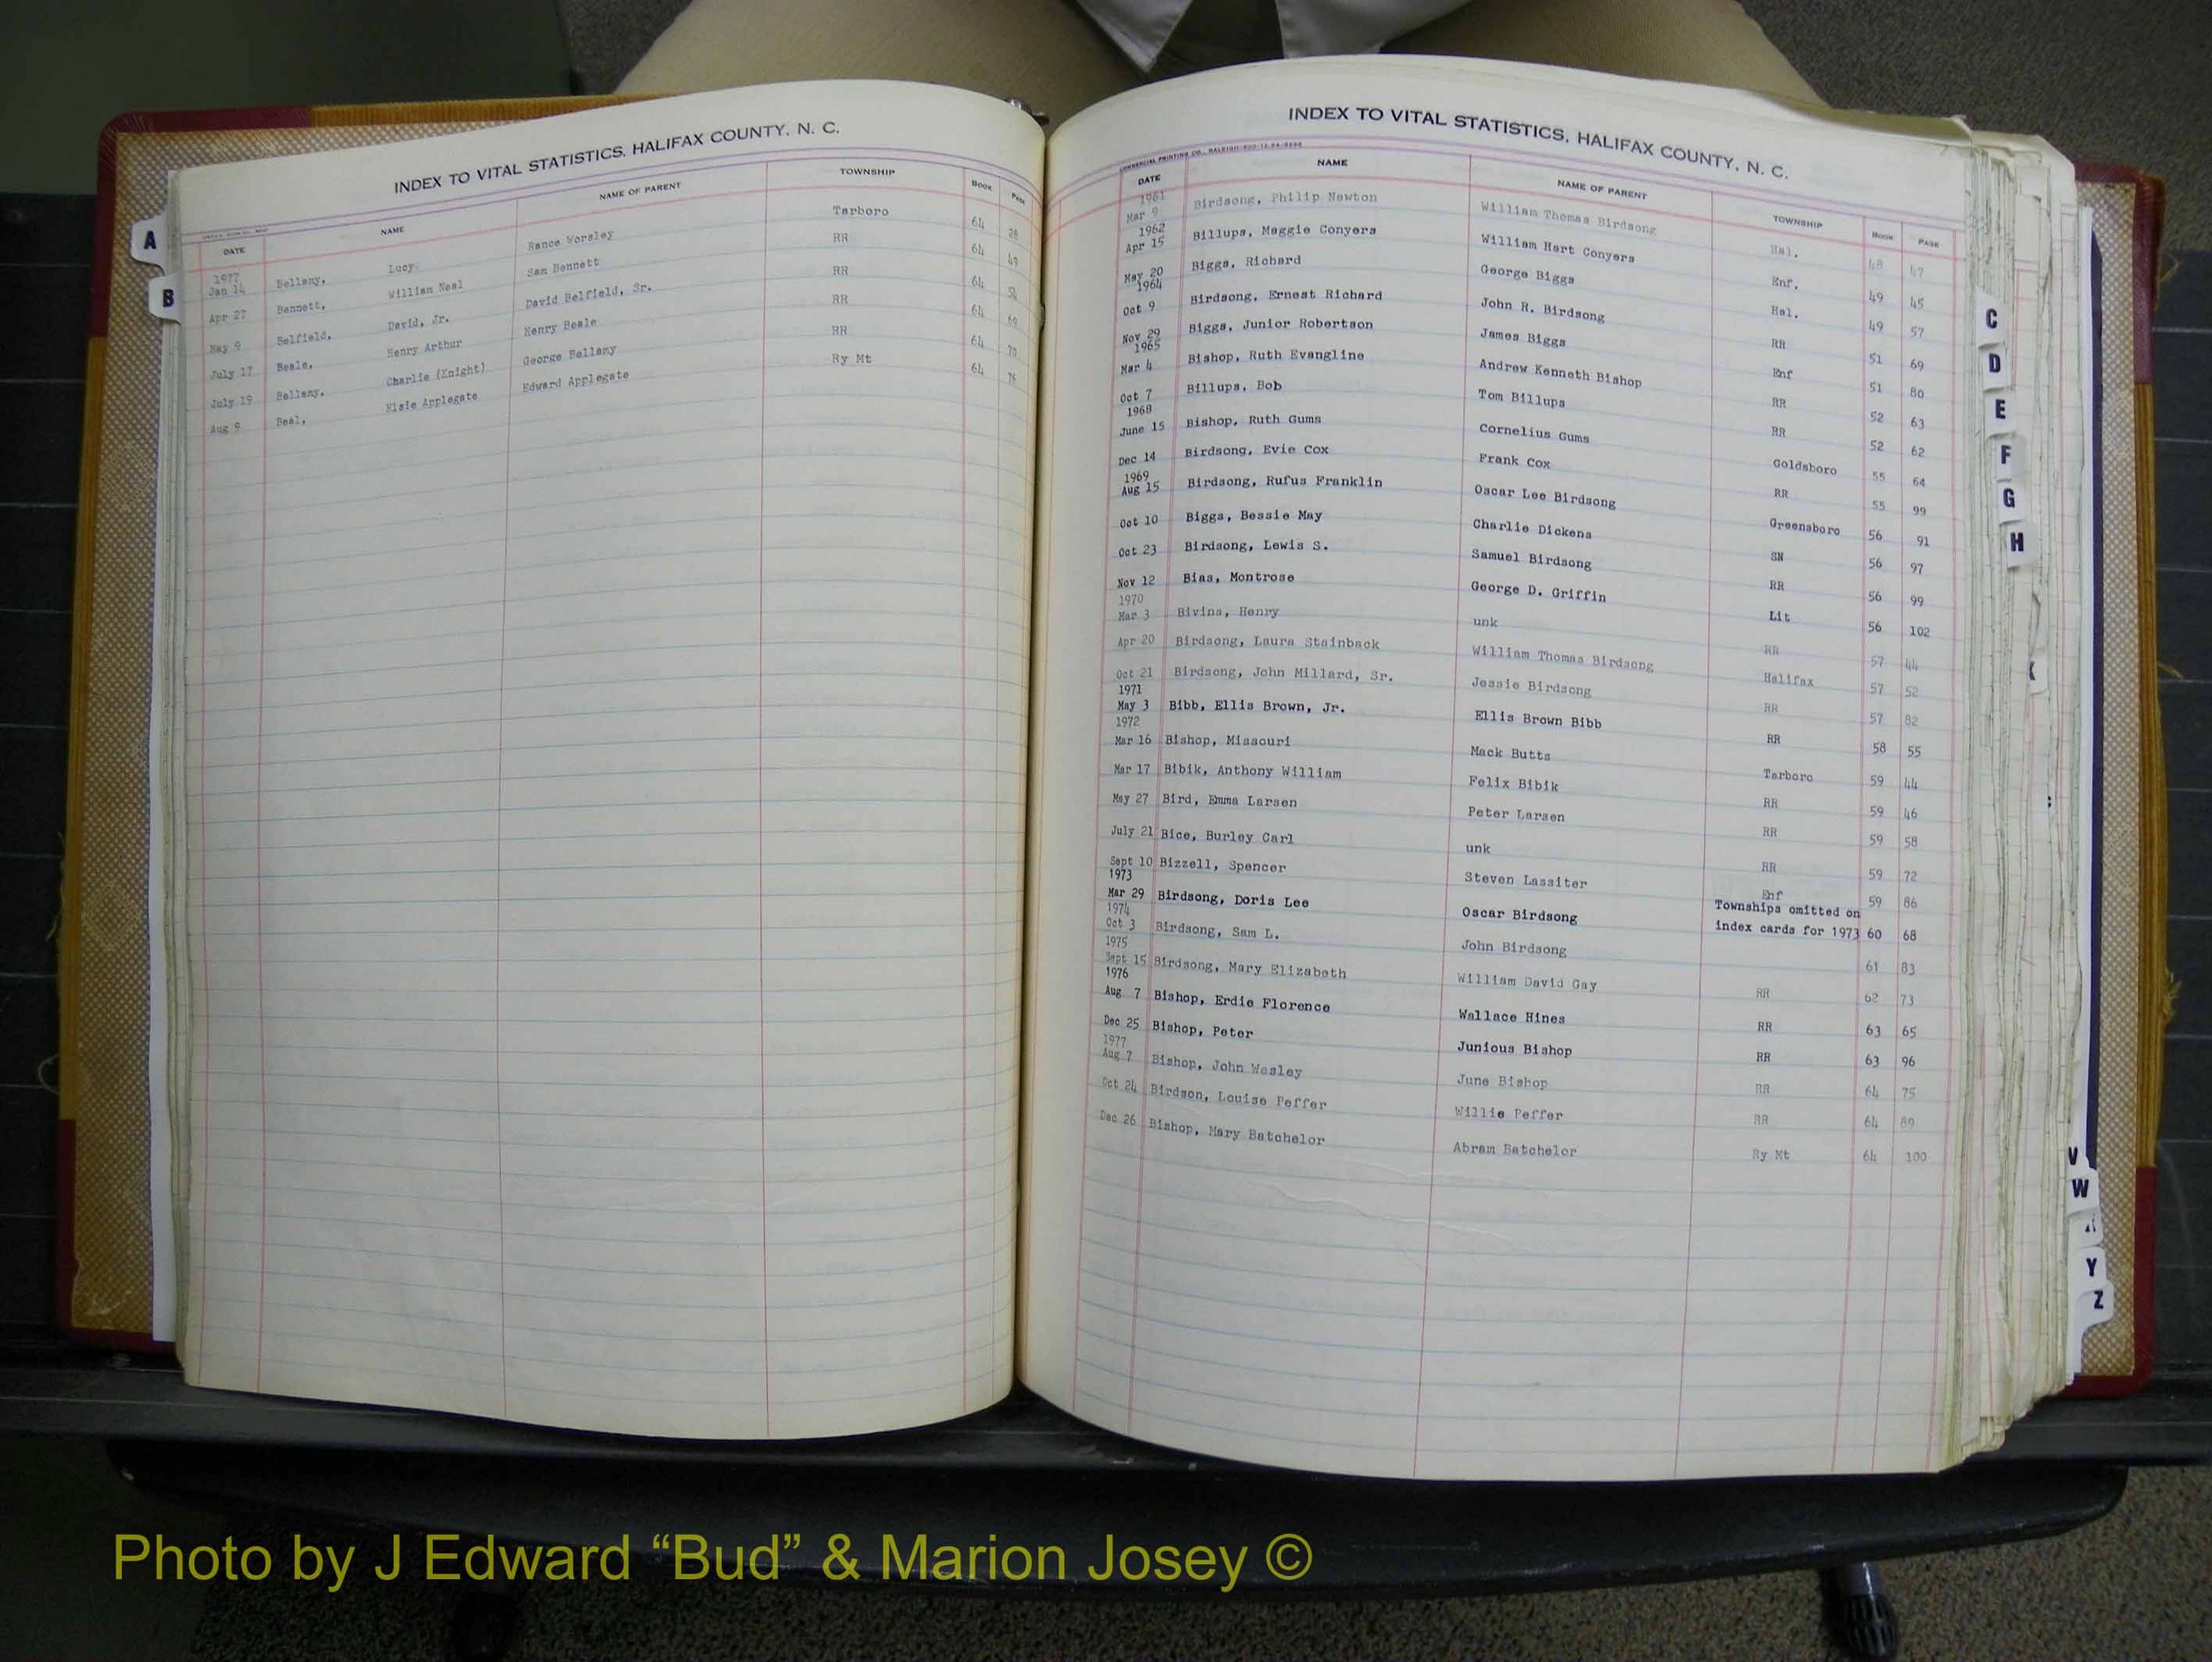 INDEX TO VITAL STATISTICS, HALIFAX COUNTY, N. C.
DATE NAME NAME OF PARENT TOWNSHIP BOOK PAGE
1977
Jan 14 Bellamy, Lucy Rance Worsley Tarboro 64 28
Apr 27 Bennett, William Neal Sam Bennett RR 64 49
May 9 Belfield, David, Jr. David Belfield, Sr. RR 64
July 17 Beale, Henry Arthur Henry Beale RR 64 69
July 19 Bellamy, Charlie (Knight) George Bellamy RR 64 70
Aug 9 Beal, Elsie Applegate Edward Applegate Ry Mt 64 76
INDEX TO VITAL STATISTICS, HALIFAX COUNTY, N. C.
COMMERCIAL PRINTING CO., RALEIGH
DATE NAME NAME OF PARENT TOWNSHIP BOOK PAGE
1961
Mar 9 Birdsong, Philip Newton William Thomas Birdsong Hal. 48 47
1962
Apr 15 Billups, Maggie Conyers William Hart Conyers Enf. 49 45
May 20 Biggs, Richard George Biggs Hal. 49 57
1964
Oct 9 Birdsong, Ernest Richard John R. Birdsong RR 51 69
Nov 29 Biggs, Junior Robertson James Biggs Enf 51 80
1965
Mar 4 Bishop, Ruth Evangline Andrew Kenneth Bishop RR 52 63
Oct 7 Billups, Bob Tom Billups RR 52 62
1968
June 15 Bishop, Ruth Gums Cornelius Gums Goldsboro 55 64
Dec 14 Birdsong, Evie Cox Frank Cox RR 55 99
1969
Aug 15 Birdsong, Rufus Franklin Oscar Lee Birdsong Greensboro 56 91
Oct 10 Biggs, Bessie May Charlie Dickens SN 56 97
Oct 23 Birdsong, Lewis S. Samuel Birdsong RR 56 99
Nov 12 Bias, Montrose George D. Griffin Lit 56 102
1970
Mar 3 Bivins, Henry unk RR 57 44
Apr 20 Birdsong, Laura Stainback William Thomas Birdsong Halifax 57 52
Oct 21 Birdsong, John Millard, Sr. Jessie Birdsong RR 57 82
1971
May 3 Bibb, Ellis Brown, Jr. Ellis Brown Bibb RR 58 55
1972
Mar 16 Bishop, Missouri Mack Butts Tarboro 59 44
Mar 17 Bibik, Anthony William Felix Bibik RR 59 46
May 27 Bird, Emma Larsen Peter Larsen RR 59 58
July 21 Bice, Burley Carl unk RR 59 72
Sept 10 Bizzell, Spencer Steven Lassiter Enf 59 86
1973
Townships omitted on
Mar 29 Birdsong, Doris Lee Oscar Birdsong index cards for 1973 60 68
1974
Oct 3 Birdsong, Sam L. John Birdsong 61 83
1975
Sept 15 Birdsong, Mary Elizabeth William David Gay RR 62 73
1976
Aug 7 Bishop, Erdie Florence Wallace Hines RR 63 65
Dec 25 Bishop, Peter Junious Bishop RR 63 96
1977
Aug 7 Bishop, John Wesley June Bishop RR 64 75
Oct 24 Birdson, Louise Peffer Willie Peffer RR 64 89
Dec 26 Bishop, Mary Batchelor Abram Batchelor Ry Mt 64 100
A
B
C
D
E
F
G
H
V
W
Y
Z
Photo by J Edward “Bud” & Marion Josey ©